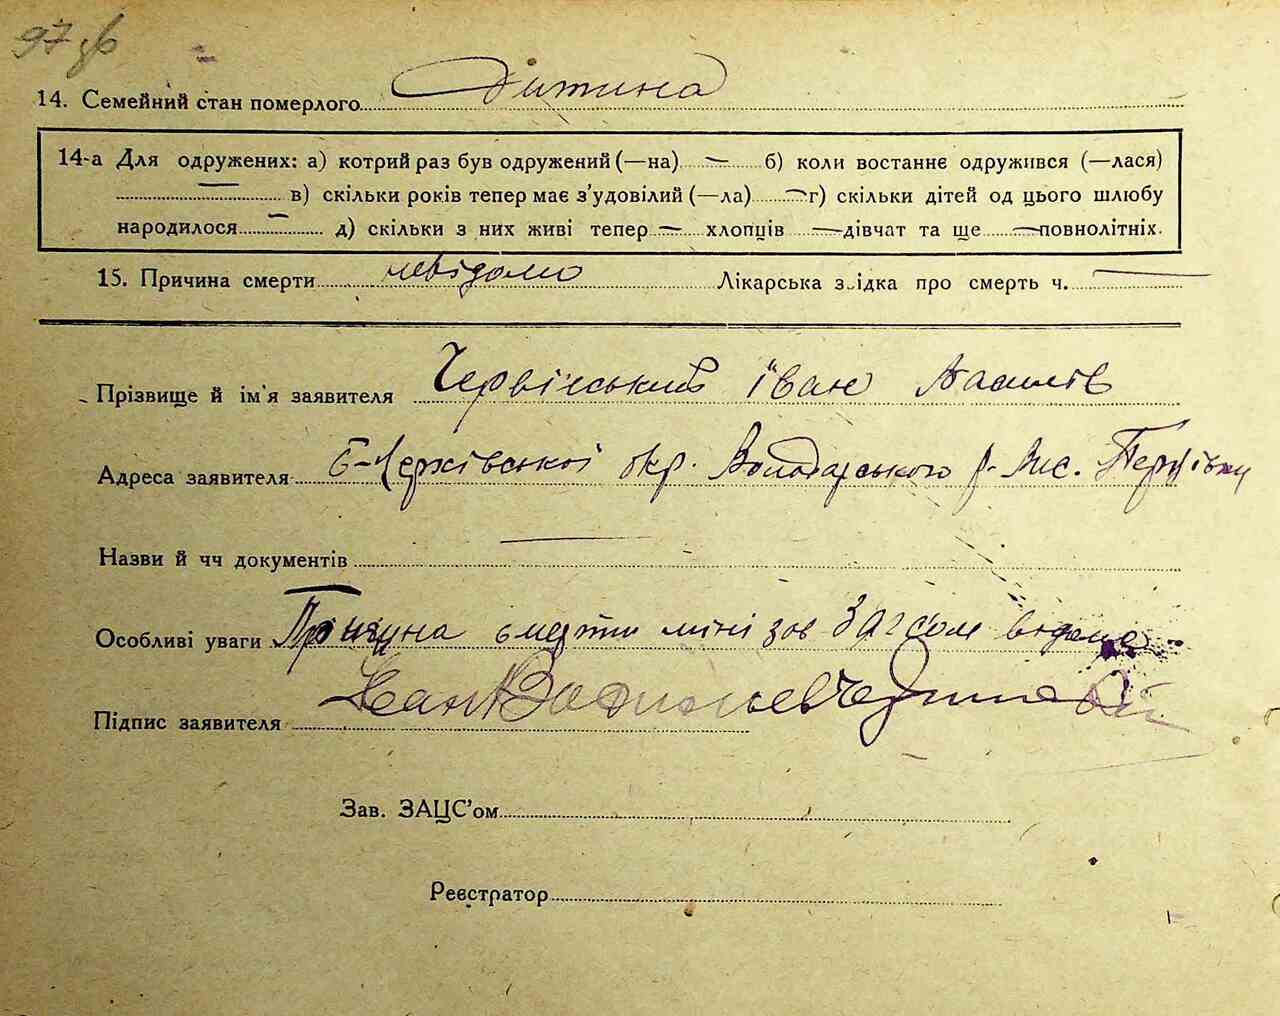 97 зв
14. Семейний стан померлого Дитина
14-а Для одружених: а) котрий раз був одружений (—на) — б) коли востаннє одружився (—лася)
— в) скільки років тепер має з'удовілий (—ла) — г) скільки дітей од цього шлюбу
народилося — д) скільки з них живі тепер — хлопців — дівчат та ще — повнолітніх.
15. Причина смерти невідомо Лікарська звідка про смерть ч. —
Прізвище й ім'я заявителя Червінський Іван Василів
Адреса заявителя Б-Церківської окр. Володарського р.
Назви й чч документів —
Особливі уваги Причина смерти міні зав Загсом
Підпис заявителя Иван Васильев
Зав. ЗАЦС'ом
Реєстратор